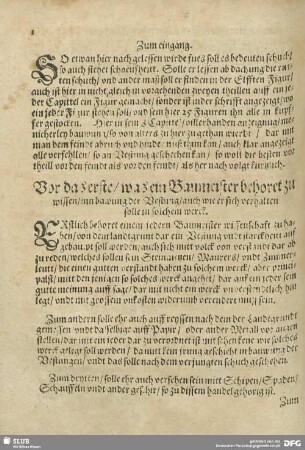 Zum eingang.
SO etwan hier nach gelessen wirdt fues soll es bedeuten schuch/
so auch stehet schoenstheitt. Solle er lessen ab dachung die
schuch/ vnd ander maß soll er finden in der Elfften Figur/
auch ist hier in nicht gleich in vorgehenden zweyen theillen auff ein je-
der Capittel ein Figur gemacht/ sonder ist in der schrifft angezeigt/ wo
ein jeder
fer gestochen. Hier in sein 3 Capitte/ vollerhanden an
nicherley bauwun/ so von alters zu hier zu gethan wierdt/ dar mit
man dem feindt abruch vnd hinde nuß thun kan/ auch klar angezeigt
alle verfehllen/ so an Vestung geschechen kan/ so woll die besten
theill vor den feindt/ als her nach volgt kürtzlich.
Vor das erste/ was ein Baumeister behoret zu
wissen/ inn bawung der Vestung/ auch wie er sich verhalten
solle in solchem werck.
ERstlich behoret einem jedern Baumeister wissenschafft zu ha-
ben/ von dem landtgrundt dar ein Vesting vndt starck ort auff
gebaut soll werden/ auch sich mitt volck von verstandt dar ab
zu reden/ welches sollen sein Steinmitzen/ Maurers/ vndt Zimmer-
leutt/ die einen gutten verstandt haben zu solchem werck/ aber princi-
palst/ mitt den jenigen so solches werck angehet/ dar auf ein jeder sein
gutte meinung auff sagt/ dar mit nicht ein werck ohnbedechtlich hin
legt/ vndt mit grossem vnkosten widerumb verendert
Zum andern solle ehr auch auff reyssen nach dem der Landtgrundt
gemessen/ vndt daselbige auff Papir/ oder ander Metall vor augen
stellen/ dar mit ein jeder dar zu verordnet ist mit sehen kene wie solches
werck gelegt soll werden/ da mitt kein irung geschicht in bauwung der
Vestungen/ vndt das solle nach dem verjungten schuch geschehen.
Zum dritten/ solle ehr auch versehen sein mitt Schipen/ Spaden/
Schauffeln vndt ander geschir/ so zu dissen handel gehörig ist.
Zum
SLUB
Wir führen Wissen.
DFG